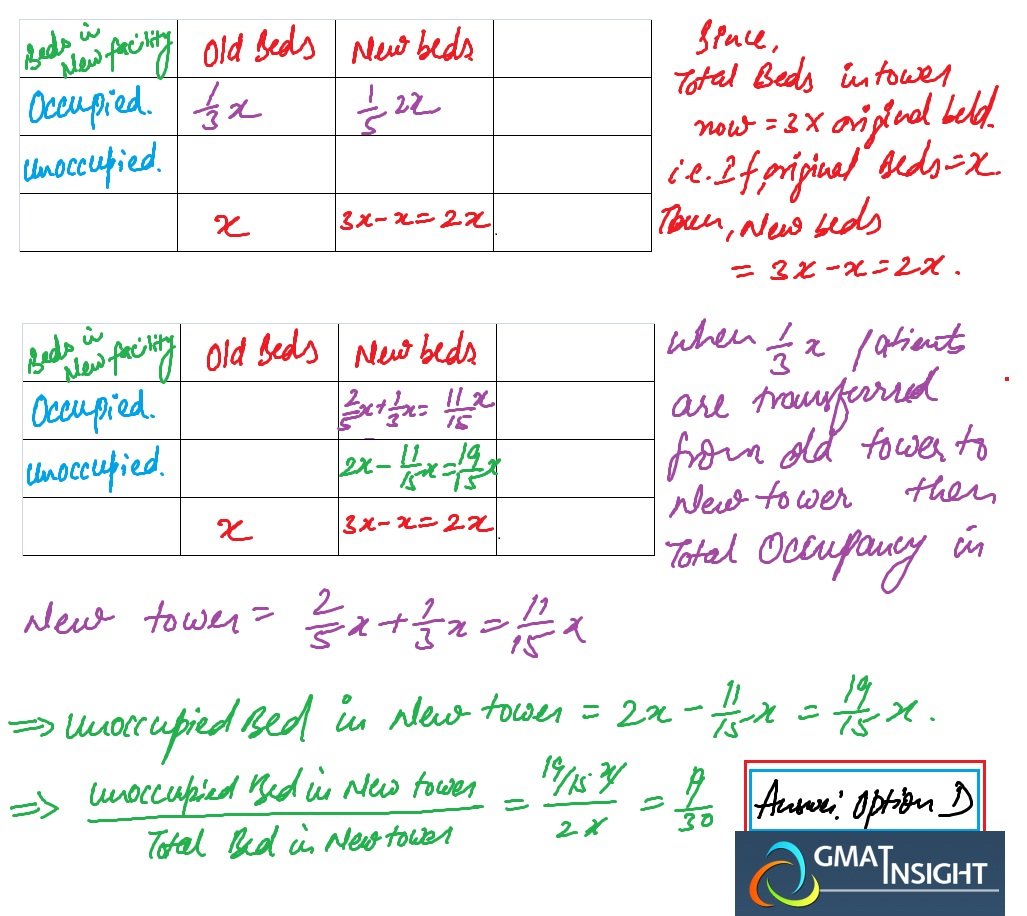 Beds in New facility
Old Beds
New beds
Occupied.
1/3 x
1/5 2x
Unoccupied.
x
3x-x=2x.
Since,
Total Beds in tower
now = 3 x original bed.
i.e. If, original Beds=x.
Then, New beds
= 3x-x=2x.
Beds in New facility
Old Beds
New beds
Occupied.
2/5 x+1/3 x= 11/15 x
Unoccupied.
2x-11/15 x=19/15 x
x
3x-x=2x.
When 1/3 x patients
are transferred
from old tower to
New tower then
Total Occupancy in
New tower = 2/5 x+1/3 x=11/15 x
⇒ Unoccupied Bed in New tower = 2x-11/15 x = 19/15 x.
⇒ Unoccupied Bed in New tower / Total Bed in New tower = 19/15 x / 2x = 19/30
Answer: Option D
GMAT INSIGHT